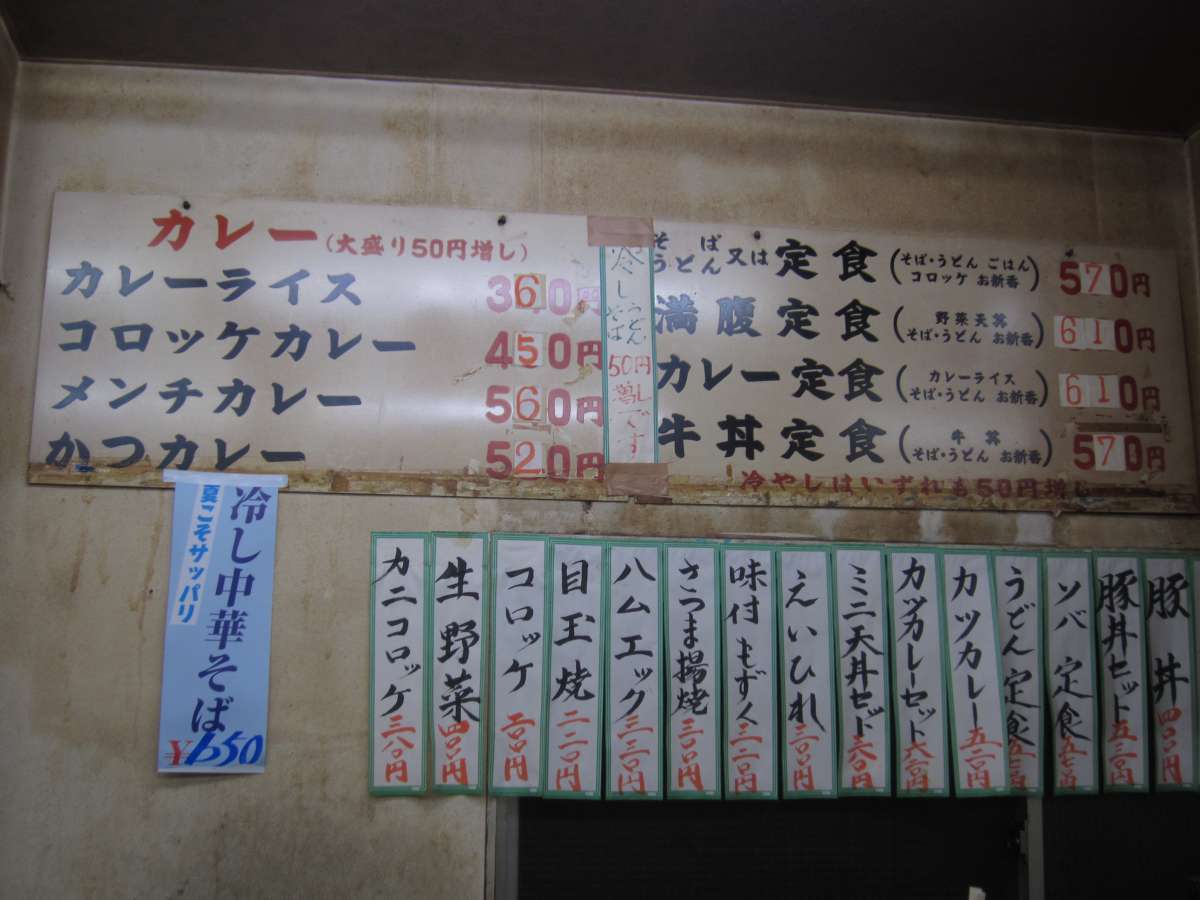 カレー(大盛り50円増し)
カレーライス 360円
コロッケカレー 450円
メンチカレー 560円
かつカレー 520円
冷しうどんそば50円増しです
そばうどん又は定食(そば・うどん ごはん コロッケ お新香) 570円
満腹定食(野菜天丼 そば・うどん お新香) 610円
カレー定食(カレーライス そば・うどん お新香) 610円
牛丼定食(牛丼 そば・うどん お新香) 570円
冷やしはいずれも50円増し
冷し中華そば
夏こそサッパリ
¥650
豚丼 四〇〇円
豚丼セット 五三〇円
ソバ定食 五七〇円
うどん定食
カツカレー 五二〇円
カツカレーセット 六三〇円
ミニ天丼セット 六〇〇円
えいひれ 三〇〇円
味付もずく 三二〇円
さつま揚焼 三〇〇円
ハムエッグ 三三〇円
目玉焼 二二〇円
コロッケ 二〇〇円
生野菜 四〇〇円
カニコロッケ 三八〇円